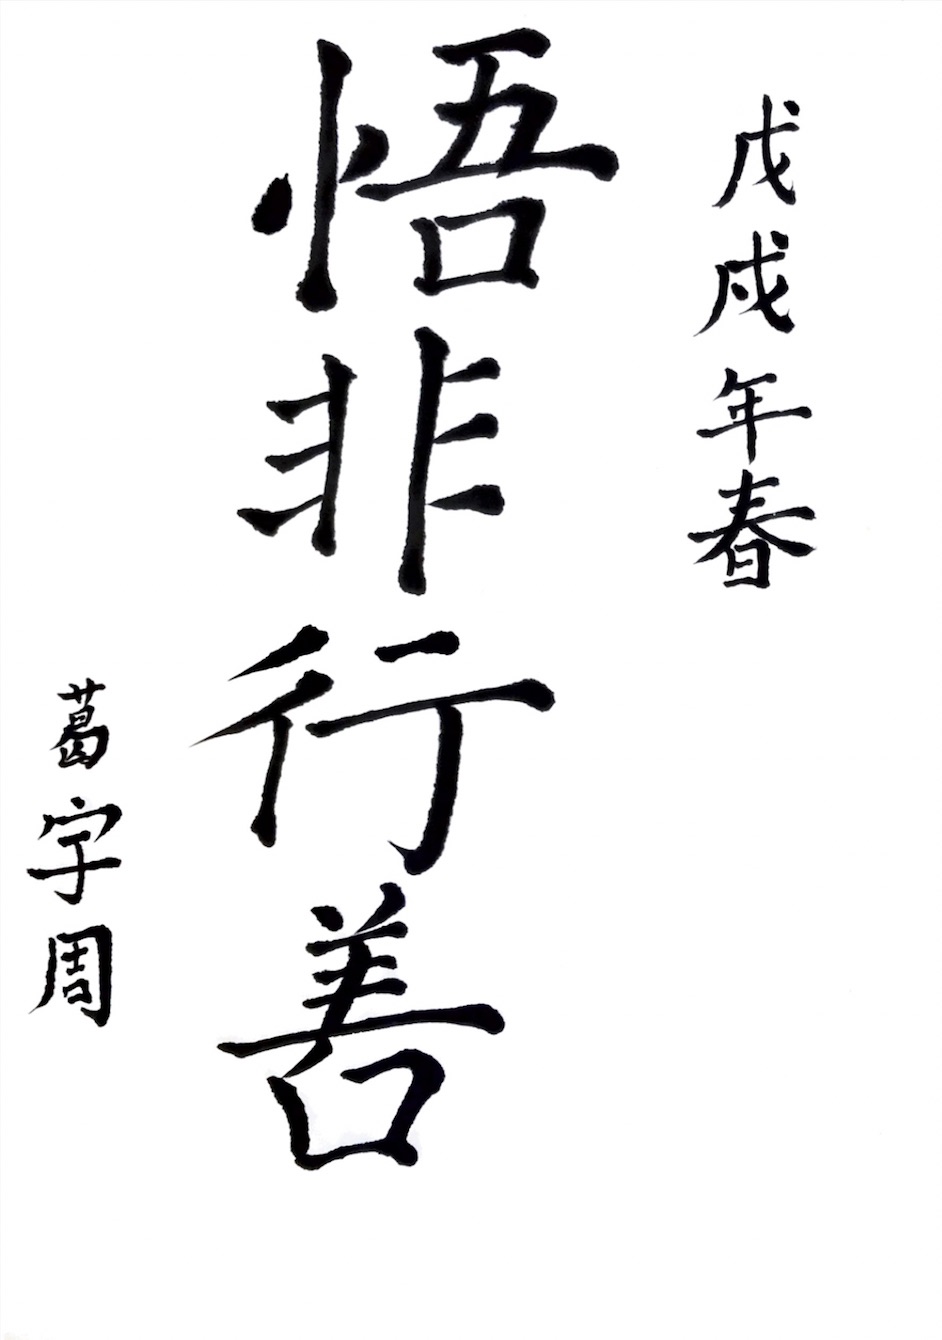 戊戌年春
悟非行善
葛宇周